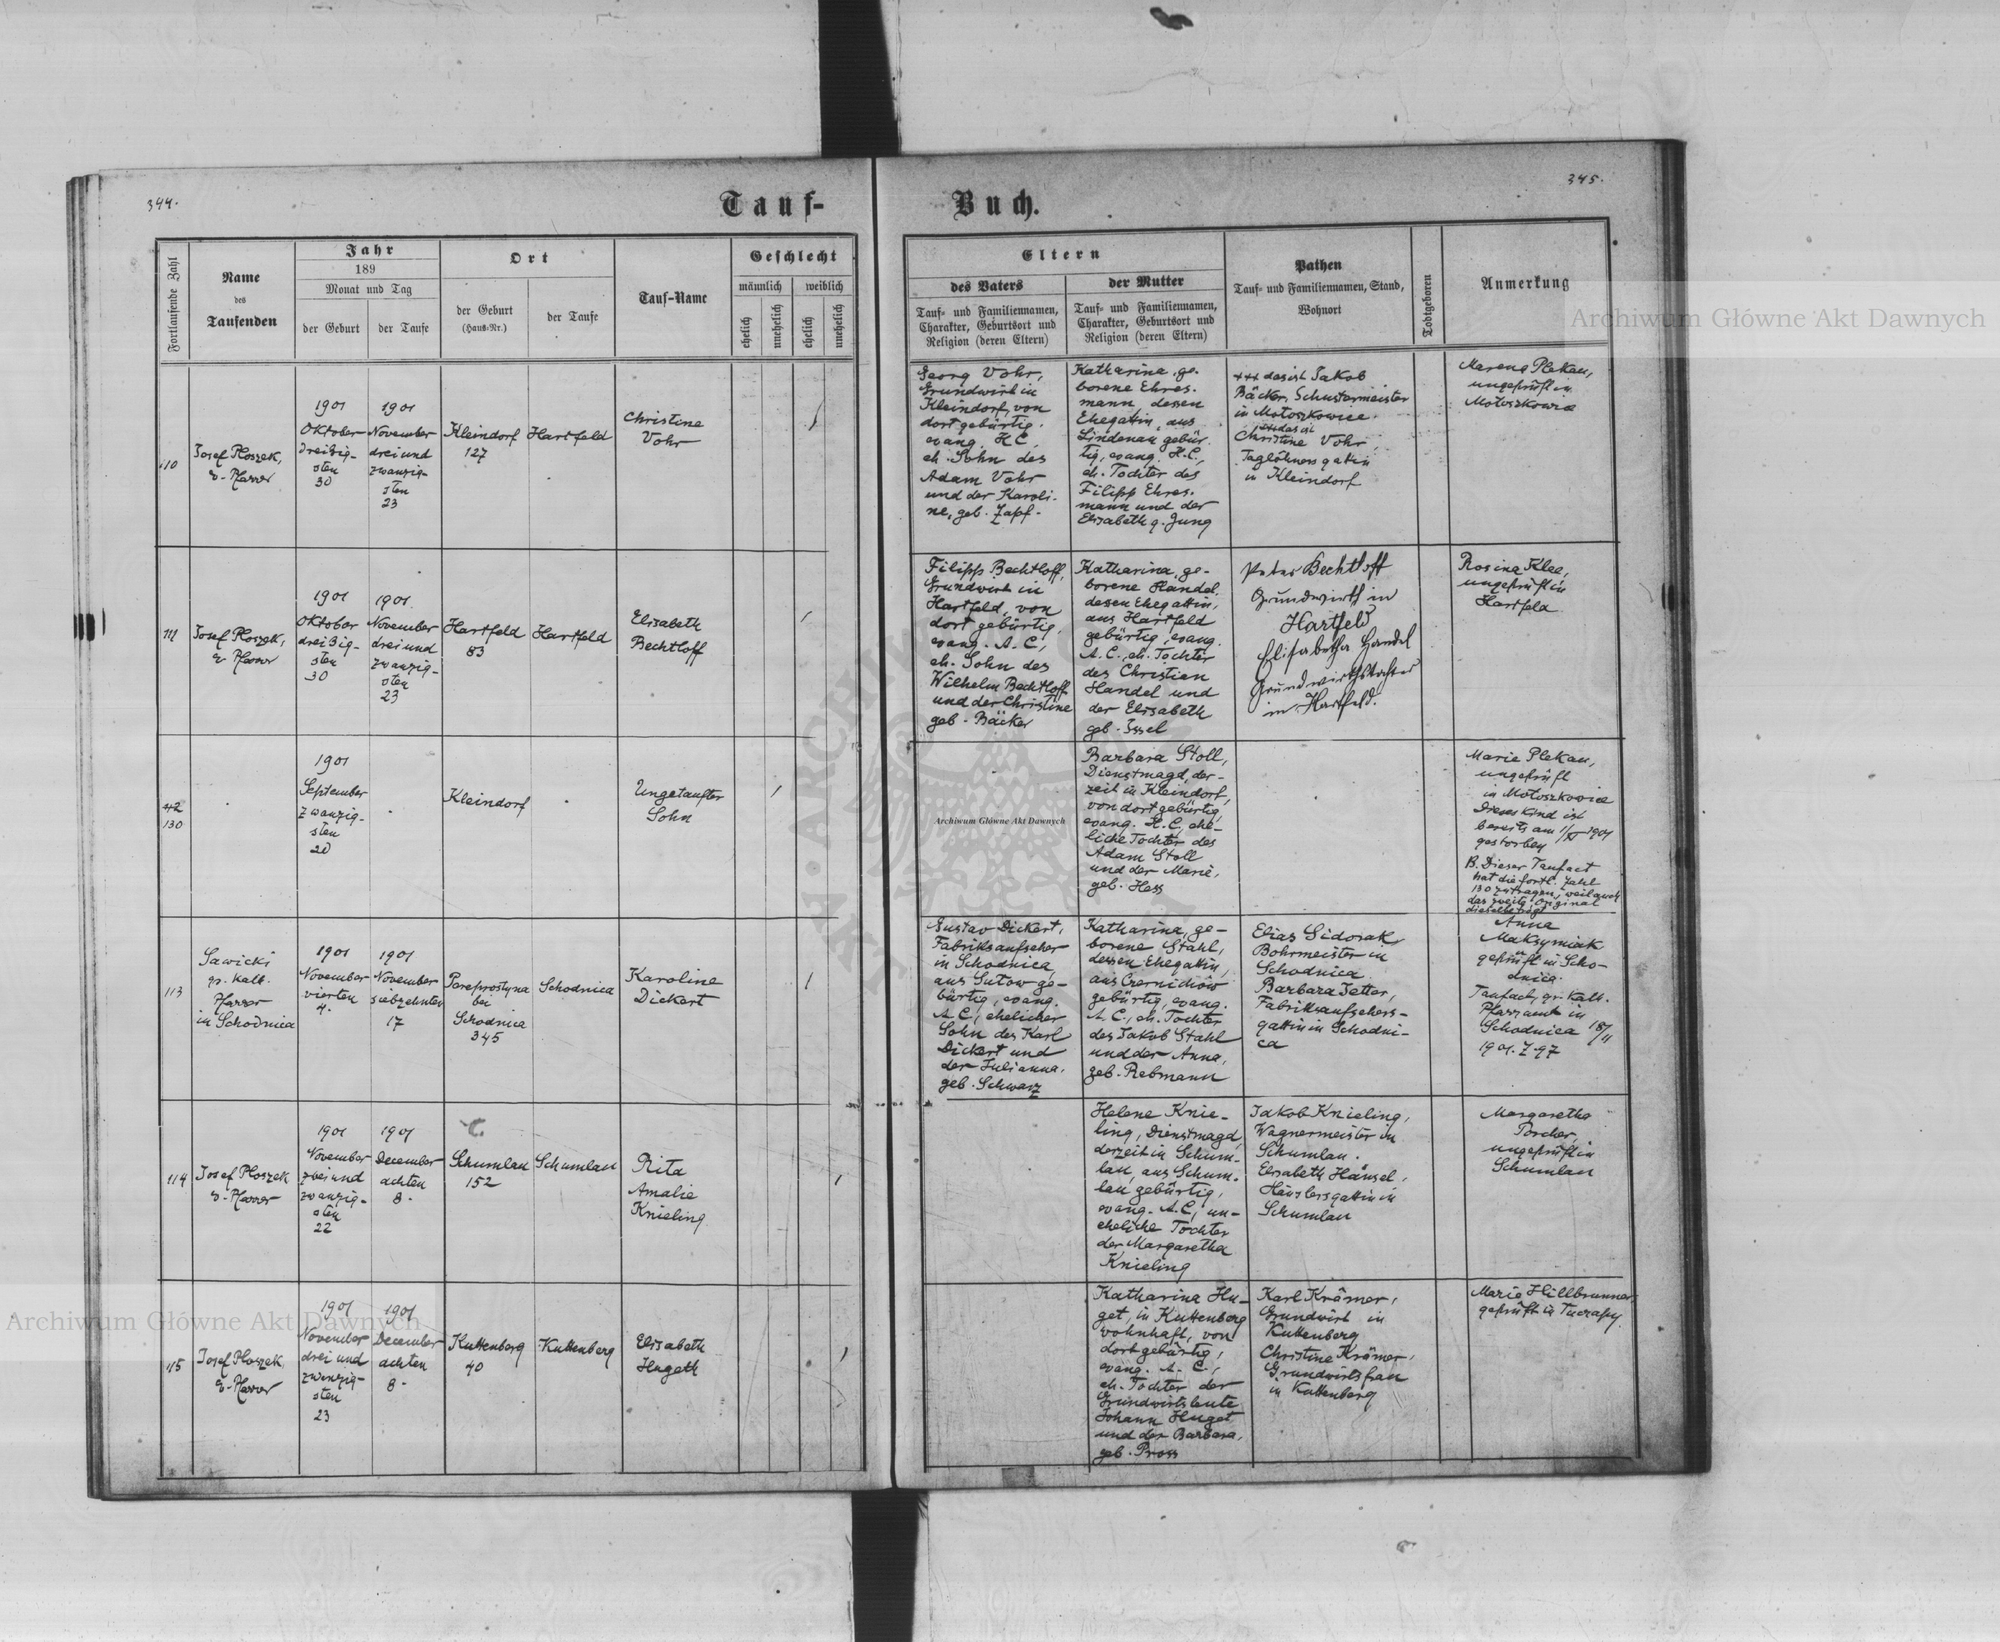 344.
Tauf-
Fortlaufende Zahl
Name
des
Taufenden
Jahr
189
Monat und Tag
der Geburt
der Taufe
Ort
der Geburt
(Haus-Nr.)
der Taufe
Tauf-Name
Geschlecht
männlich
weiblich
ehelich
unehelich
ehelich
unehelich
110
Josef Ploszek,
e. Pfarrer
1901
Oktober
dreißig-
sten
30
1901
November
drei und
zwanzig-
sten
23
Kleindorf
127
Hartfeld
Christine
Vohr
111
Josef Ploszek,
e. Pfarrer
1901
Oktober
dreißig-
sten
30
1901.
November
drei und
zwanzig-
sten
23
Hartfeld
83
Hartfeld
Elisabeth
Bechtloff
112
130
1901
September
zwanzig-
sten
20
Kleindorf
Ungetaufter
Sohn
113
Sawicki
gr. kath.
Pfarrer
in Schodnica
1901
November
vierten
4.
1901
November
siebzehnten
17
Pereprostyna
bei
Schodnica
345
Schodnica
Karoline
Dickert
114
Josef Ploszek
e. Pfarrer
1901
November
zwei und
zwanzig-
sten
22
1901
December
achten
8.
Schumlau
152
Schumlau
Rita
Amalie
Knieling
115
Josef Ploszek,
e. Pfarrer
1901
November
drei und
zwanzig-
sten
23
1901
December
achten
8.
Kuttenberg
40
Kuttenberg
Elisabeth
Hugeth
345.
Buch.
Eltern
des Vaters
Tauf- und Familiennamen,
Charakter, Geburtsort und
Religion (deren Eltern)
der Mutter
Tauf- und Familiennamen,
Charakter, Geburtsort und
Religion (deren Eltern)
Pathen
Tauf- und Familiennamen, Stand,
Wohnort
Todtgeboren
Anmerkung
Georg Vohr,
Grundwirt in
Kleindorf, von
dort gebürtig,
evang. H.C.,
eh. Sohn des
Adam Vohr
und der Karoli-
ne, geb. Zapf.
Katharina, ge-
borene Ehres-
mann, dessen
Ehegattin, aus
Lindenau gebür-
tig, evang. H.C.,
eh. Tochter des
Filipp Ehres-
mann und der
Elisabeth g. Jung
+++ das ist Jakob
Bäcker, Schustermeister
in Mołoszkowice.
+++ das ist
Christine Vohr,
Taglöhnersgattin
in Kleindorf
Marena Plekau,
ungeprüft in
Mołoszkowice
Filipp Bechtloff,
Grundwirt in
Hartfeld, von
dort gebürtig,
evang. A.C.,
eh. Sohn des
Wilhelm Bechtloff
und der Christine
geb. Bäcker
Katharina, ge-
borene Handel,
dessen Ehegattin,
aus Hartfeld
gebürtig, evang.
A.C., eh. Tochter
des Christian
Handel und
der Elisabeth
geb. Issel
Peter Bechtloff
Grundwirth in
Hartfeld
Elisabetha Handel
Grundwirthstochter
in Hartfeld.
Rosina Klee,
ungeprüft in
Hartfeld
Barbara Stoll,
Dienstmagd, der-
zeit in Kleindorf,
von dort gebürtig,
evang. H.C., ehe-
liche Tochter des
Adam Stoll
und der Marie,
geb. Hess
Marie Plekau,
ungeprüft
in Mołoszkowice
Dieses Kind ist
bereits am 1/XI 1901
gestorben
B. Dieser Taufact
hat die fortl. Zahl
130 zu tragen, weil auch
das zweite Original
dieselbe trägt
Gustav Dickert,
Fabriksaufseher
in Schodnica,
aus Sutow ge-
bürtig, evang.
A.C., ehelicher
Sohn des Karl
Dickert und
der Julianna,
geb. Schwarz
Katharina, ge-
borene Stahl,
dessen Ehegattin,
aus Czernichów
gebürtig, evang.
A.C., eh. Tochter
des Jakob Stahl
und der Anna,
geb. Rebmann
Elias Sidorak,
Bohrmeister in
Schodnica.
Barbara Jetter,
Fabriksaufsehers-
gattin in Schodni-
ca
Anna
Maksymiak
geprüft in Scho-
dnica.
Taufact, gr. kath.
Pfarramt in
Schodnica 18/11
1901. Z. 97
Helene Knie-
ling, Dienstmagd,
derzeit in Schum-
lau, aus Schum-
lau gebürtig,
evang. A.C., un-
eheliche Tochter
der Margaretha
Knieling
Jakob Knieling,
Wagnermeister in
Schumlau.
Elisabeth Hänsel,
Häuslersgattin in
Schumlau
Margaretha
Porcher,
ungeprüft in
Schumlau
Katharina Hu-
get, in Kuttenberg
wohnhaft, von
dort gebürtig,
evang. A.C.,
eh. Tochter der
Grundwirtsleute
Johann Huget
und der Barbara,
geb. Pross
Karl Krämer,
Grundwirt in
Kuttenberg
Christine Krämer,
Grundwirtsfrau
in Kuttenberg
Marie Hillbrunner,
geprüft in Tuczapy.
Archiwum Główne Akt Dawnych
Archiwum Główne Akt Dawnych
Archiwum Główne Akt Dawnych